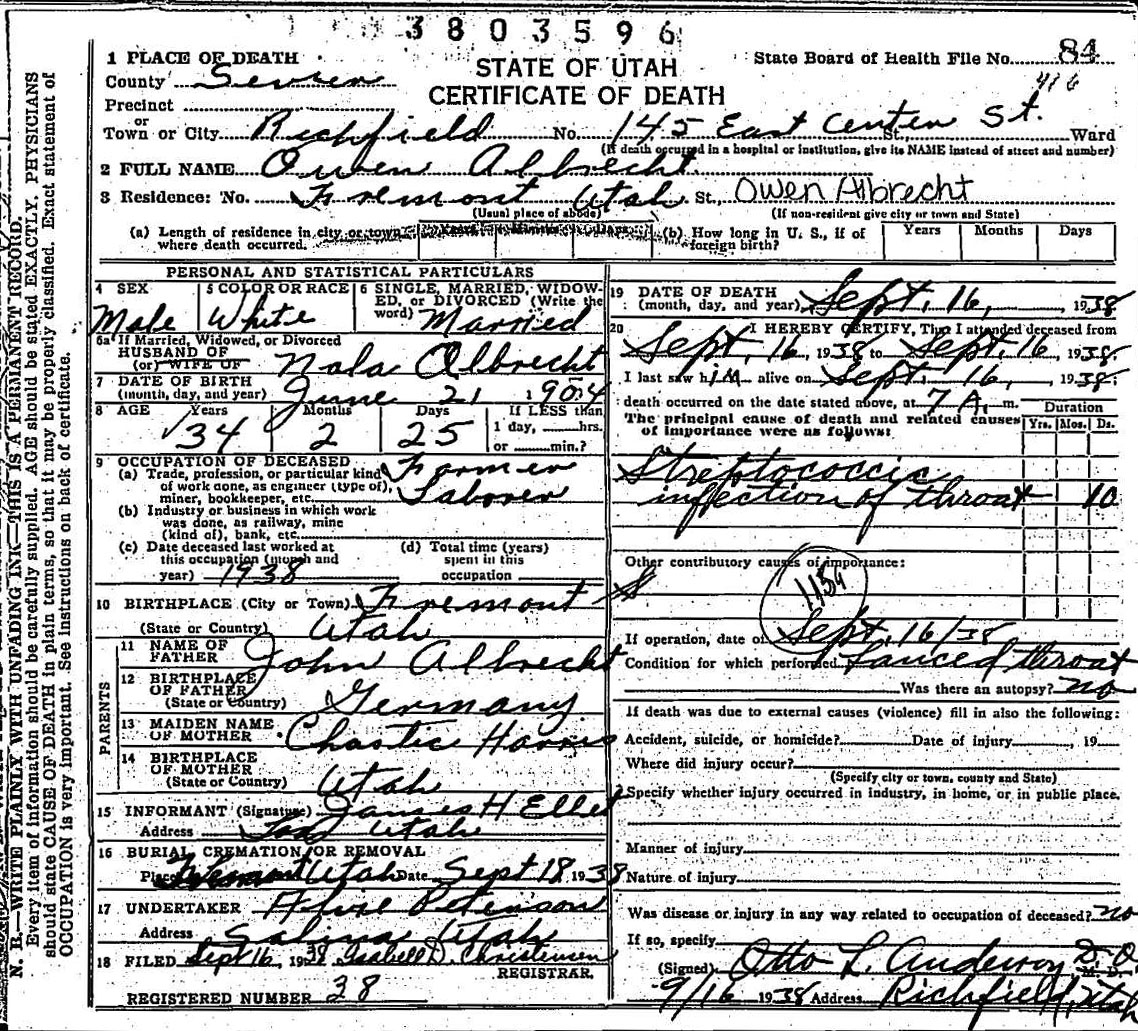 3803596
1 PLACE OF DEATH
STATE OF UTAH
State Board of Health File No. 84
County Sevier
CERTIFICATE OF DEATH
416
Precinct
or
Town or City Richfield No. 145 East Center St. St. Ward
(If death occurred in a hospital or institution, give its NAME instead of street and number)
2 FULL NAME Owen Albrecht.
3 Residence: No. Fremont Utah St., Owen Albrecht
(Usual place of abode) (If non-resident give city or town and State)
(a) Length of residence in city or town where death occurred. Years Months Days
(b) How long in U. S., if of foreign birth? Years Months Days
PERSONAL AND STATISTICAL PARTICULARS
4 SEX Male
5 COLOR OR RACE White
6 SINGLE, MARRIED, WIDOWED, or DIVORCED (Write the word) Married
6a If Married, Widowed, or Divorced
HUSBAND OF
(or) WIFE OF Nala Albrecht
7 DATE OF BIRTH
(month, day, and year) June 21 1904
8 AGE Years Months Days If LESS than
34 2 25 1 day, hrs.
or min.?
9 OCCUPATION OF DECEASED
(a) Trade, profession, or particular kind of work done, as engineer (type of), miner, bookkeeper, etc. Farmer Laborer
(b) Industry or business in which work was done, as railway, mine (kind of), bank, etc.
(c) Date deceased last worked at this occupation (month and year) 1938
(d) Total time (years) spent in this occupation
10 BIRTHPLACE (City or Town) Fremont
(State or Country) Utah
PARENTS
11 NAME OF FATHER John Albrecht
12 BIRTHPLACE OF FATHER (State or Country) Germany
13 MAIDEN NAME OF MOTHER Chastie Harris
14 BIRTHPLACE OF MOTHER (State or Country) Utah
15 INFORMANT (Signature) James H Ellet
Address Utah
16 BURIAL, CREMATION OR REMOVAL
Place Fremont Utah Date Sept 18, 1938
17 UNDERTAKER Peterson
Address Salina Utah
18 FILED Sept 16, 1938 Isabell D. Christensen
REGISTRAR.
REGISTERED NUMBER 38
19 DATE OF DEATH
(month, day, and year) Sept. 16, 1938
20 I HEREBY CERTIFY, That I attended deceased from
Sept, 16, 1938 to Sept. 16, 1938.
I last saw him alive on Sept. 16, 1938.
death occurred on the date stated above, at 7 A. m.
The principal cause of death and related causes of importance were as follows:
Duration
Yrs. Mos. Ds.
Streptococcic
infection of throat 10
Other contributory causes of importance:
S
115a
If operation, date of Sept. 16/38
Condition for which performed Lanced throat
Was there an autopsy? no
If death was due to external causes (violence) fill in also the following:
Accident, suicide, or homicide? Date of injury , 19
Where did injury occur?
(Specify city or town, county and State)
Specify whether injury occurred in industry, in home, or in public place.
Manner of injury
Nature of injury
Was disease or injury in any way related to occupation of deceased? no
If so, specify
(Signed) Otto L. Anderson D.O. M. D.
9/16 1938 Address Richfield, Utah
N. B.—WRITE PLAINLY WITH UNFADING INK—THIS IS A PERMANENT RECORD.
Every item of information should be carefully supplied. AGE should be stated EXACTLY. PHYSICIANS
should state CAUSE OF DEATH in plain terms, so that it may be properly classified. Exact statement of
OCCUPATION is very important. See instructions on back of certificate.